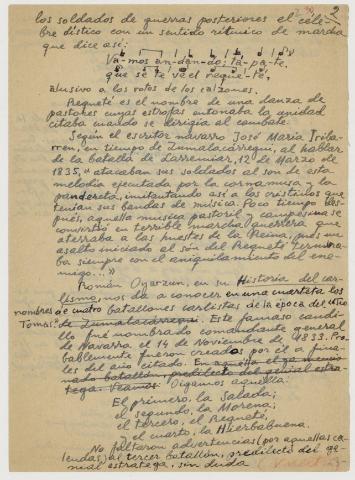 2
los soldados de guerras posteriores el céle-
bre dístico con un sentido rítmico de marcha
que dice así:
Vá-mos an-dan-do; tá-pa-te,
que se te ve el requé-té,
alusivo a los rotos de los calzones.
Requeté es el nombre de una danza de
pastores cuyas estrofas entonaba la unidad
citada cuando se dirigía al combate.
Según el escritor navarro José María Iriba-
rren, en tiempo de Zumalacárregui, al hablar
de la batalla de Larremiar, 12 de Marzo de
1835, "atacaban sus soldados al son de esta
melodía ejecutada por la cornamusa y la
pandereta, imitando así a los cristinos que
tenían sus bandas de música. Poco tiempo des-
pués, aquella música pastoril y campesina se
convirtió en terrible marcha guerrera que
aterraba a las huestes de la Reina, pues un
asalto iniciado al són del Requeté termina-
ba siempre con el aniquilamiento del ene-
migo..."
Román Oyarzun, en su Historia del car-
lismo, nos da a conocer en una cuarteta los
nombres de cuatro batallones carlistas de la época del Tío
Tomás. de Zumalacárregui. Este famoso caudi-
llo fué nombrado comandante general
de Navarra el 14 de Noviembre de 1833. Pro-
bablemente fueron creados por él a fina-
les del año citado. En aquella
nado batallón predilecto del genial estra-
tega. Veamos Oigamos aquella:
El primero, la Salada;
el segundo, la Morena;
el tercero, el Requeté,
y el cuarto, la Hierbabuena.
No faltaron advertencias (por aquellas ca-
lendas) al tercer batallón, predilecto del ge-
nial estratega, sin duda